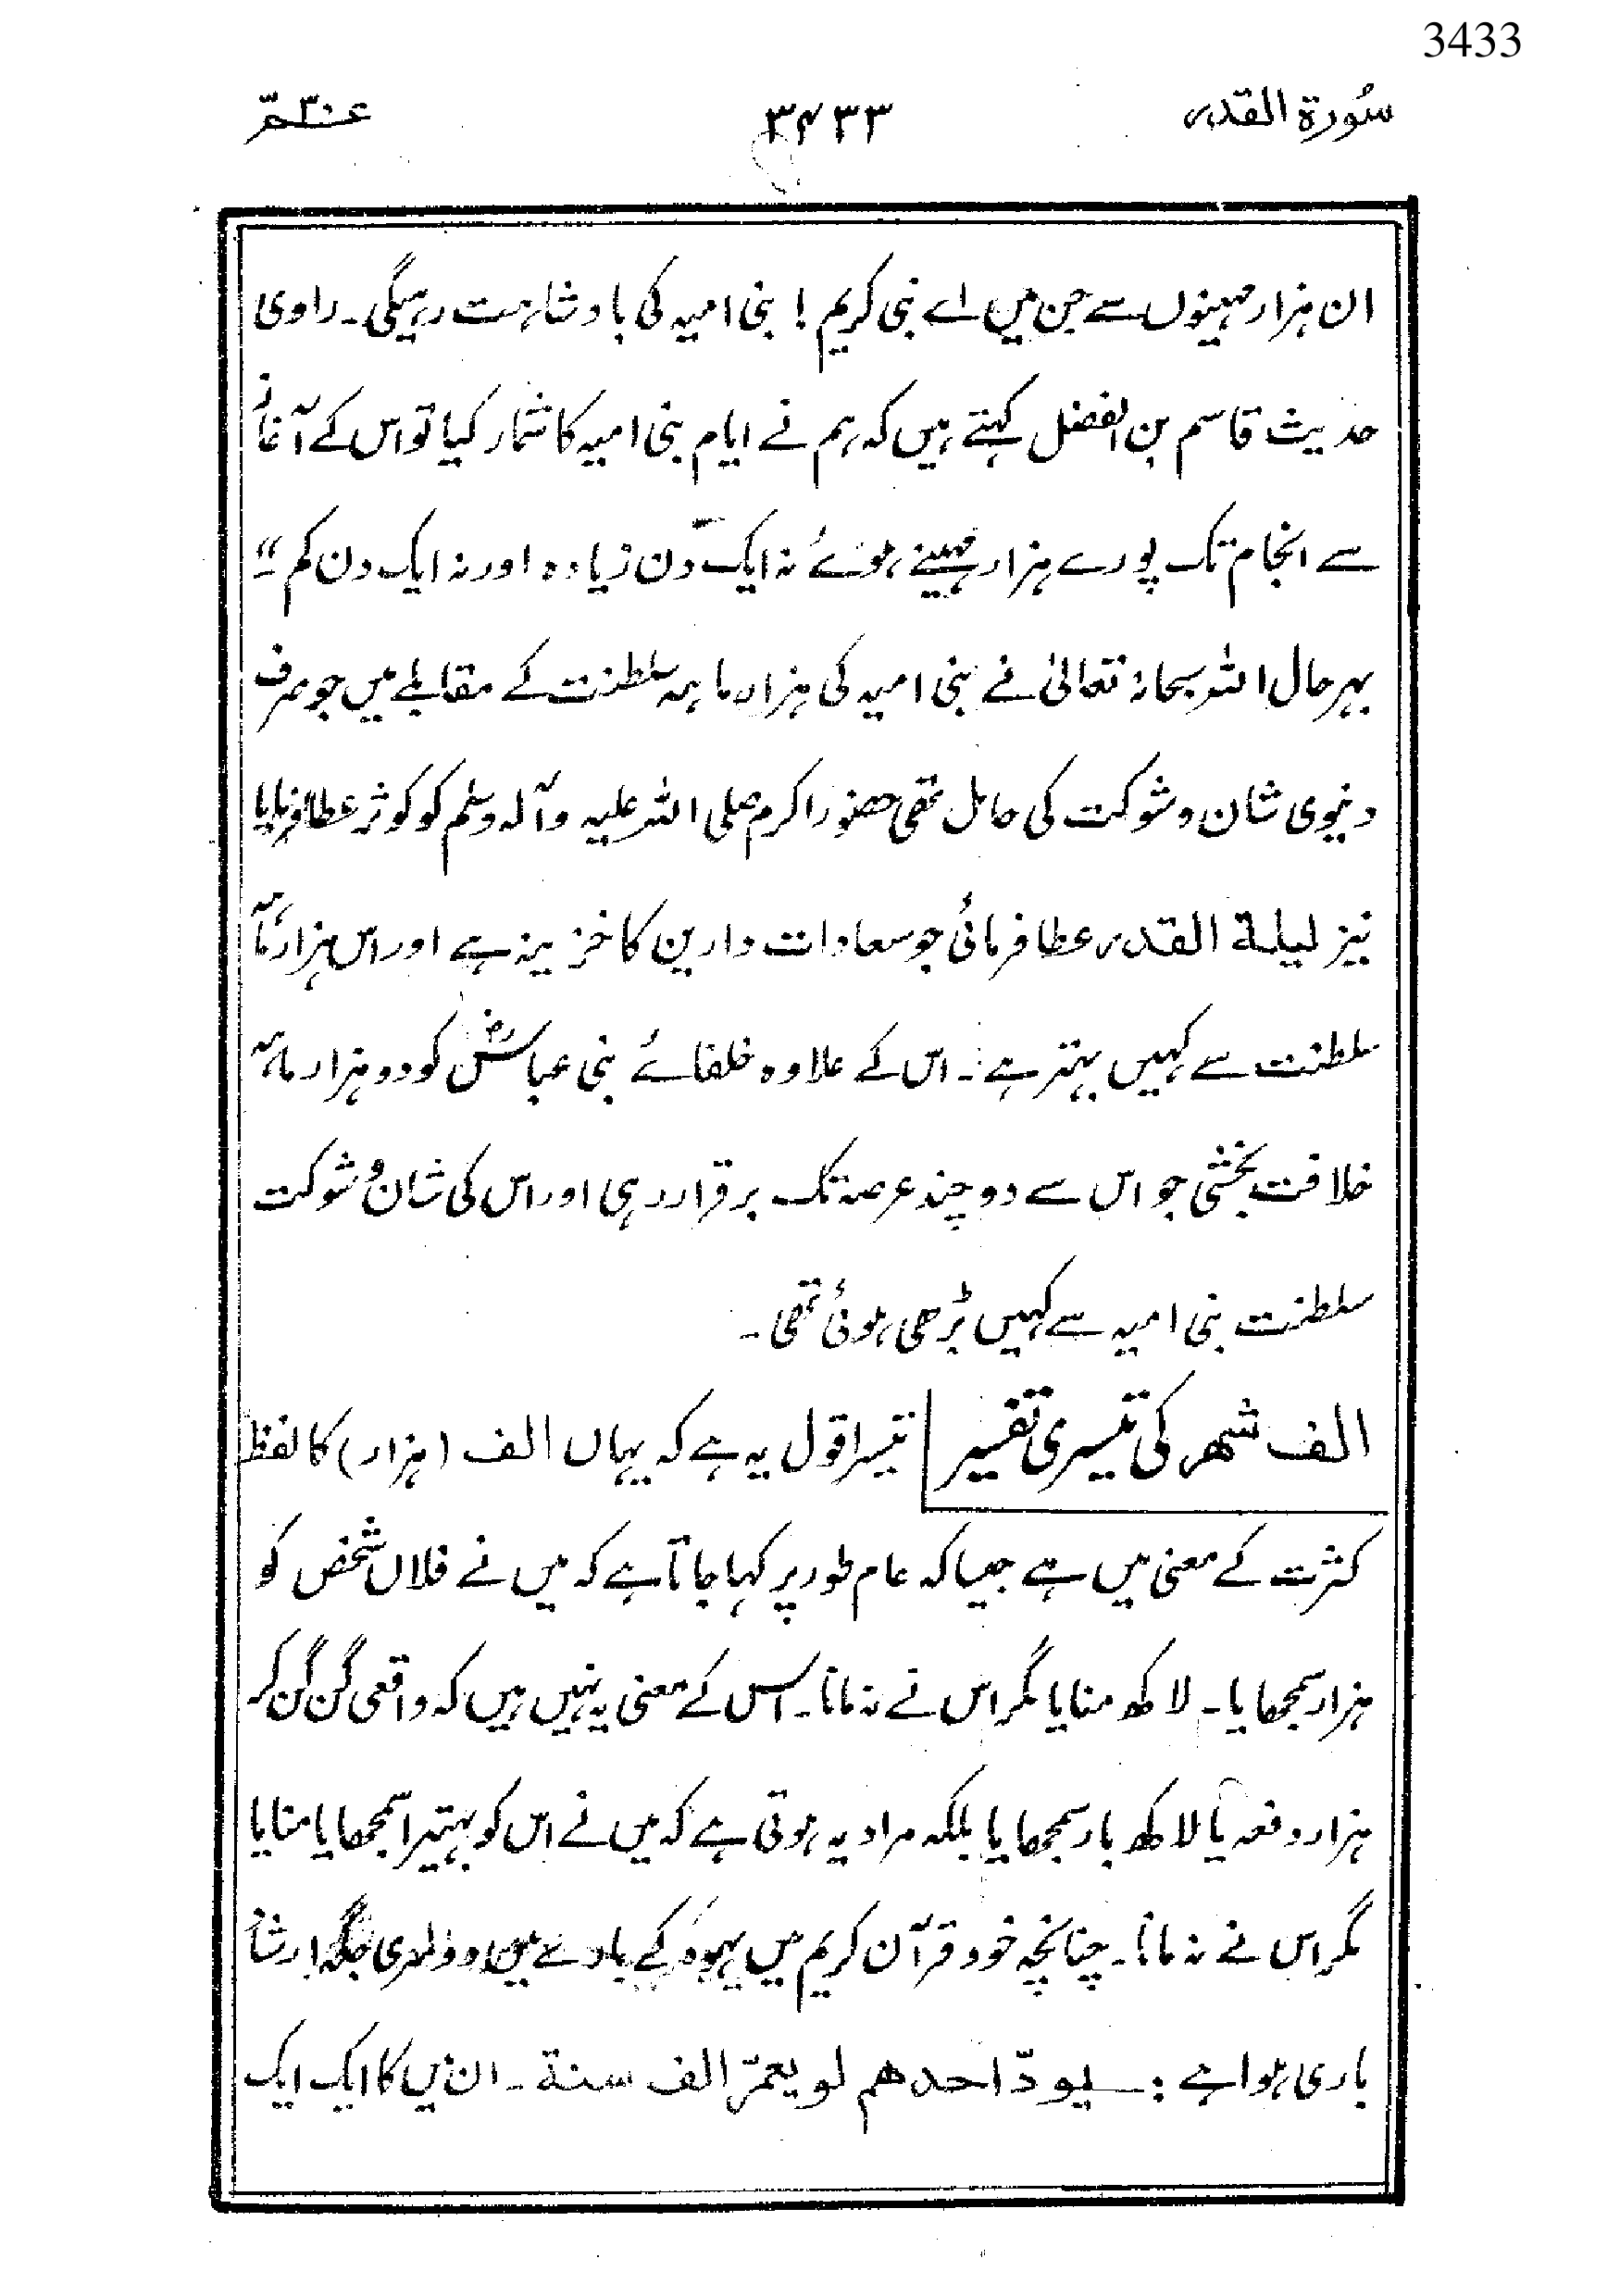 3433
سُورة القدر ۳۴۳۳ عمّ ۳۰
ان ہزار مہینوں سے جن میں اے نبی کریم! بنی امیہ کی بادشاہت رہیگی۔ راوی
حدیث قاسم بن الفضل کہتے ہیں کہ ہم نے ایام بنی امیہ کا شمار کیا تو اس کے آغاز
سے انجام تک پورے ہزار مہینے ہوئے نہ ایک دن زیادہ اور نہ ایک دن کم"۔
بہرحال اللہ سبحانہ تعالیٰ نے بنی امیہ کی ہزار ماہہ سلطنت کے مقابلے میں جو صرف
دنیوی شان و شوکت کی حامل تھی حضور اکرم صلی اللہ علیہ وآلہ وسلم کو کوثر عطا فرمایا
نیز لیلۃ القدر عطا فرمائی جو سعادات دارین کا خزینہ ہے اور اس ہزار ماہہ
سلطنت سے کہیں بہتر ہے۔ اس کے علاوہ خلفائے بنی عباسؓ کو دو ہزار ماہہ
خلافت بخشی جو اس سے دو چند عرصہ تک برقرار رہی اور اس کی شان و شوکت
سلطنت بنی امیہ سے کہیں بڑھی ہوئی تھی۔
الف شھر کی تیسری تفسیر تیسرا قول یہ ہے کہ یہاں الف (ہزار) کا لفظ
کثرت کے معنی میں ہے جیسا کہ عام طور پر کہا جاتا ہے کہ میں نے فلاں شخص کو
ہزار سمجھایا۔ لاکھ منایا مگر اس نے نہ مانا۔ اس کے معنی یہ نہیں ہیں کہ واقعی گن گن کر
ہزار دفعہ یا لاکھ بار سمجھایا بلکہ مراد یہ ہوتی ہے کہ میں نے اس کو بہتیرا سمجھایا منایا
مگر اس نے نہ مانا۔ چنانچہ خود قرآن کریم میں یہود کے بارے میں دوسری جگہ ارشاد
باری ہوا ہے: یودّ احدھم لو یعمّر الف سنۃ۔ ان میں کا ایک ایک